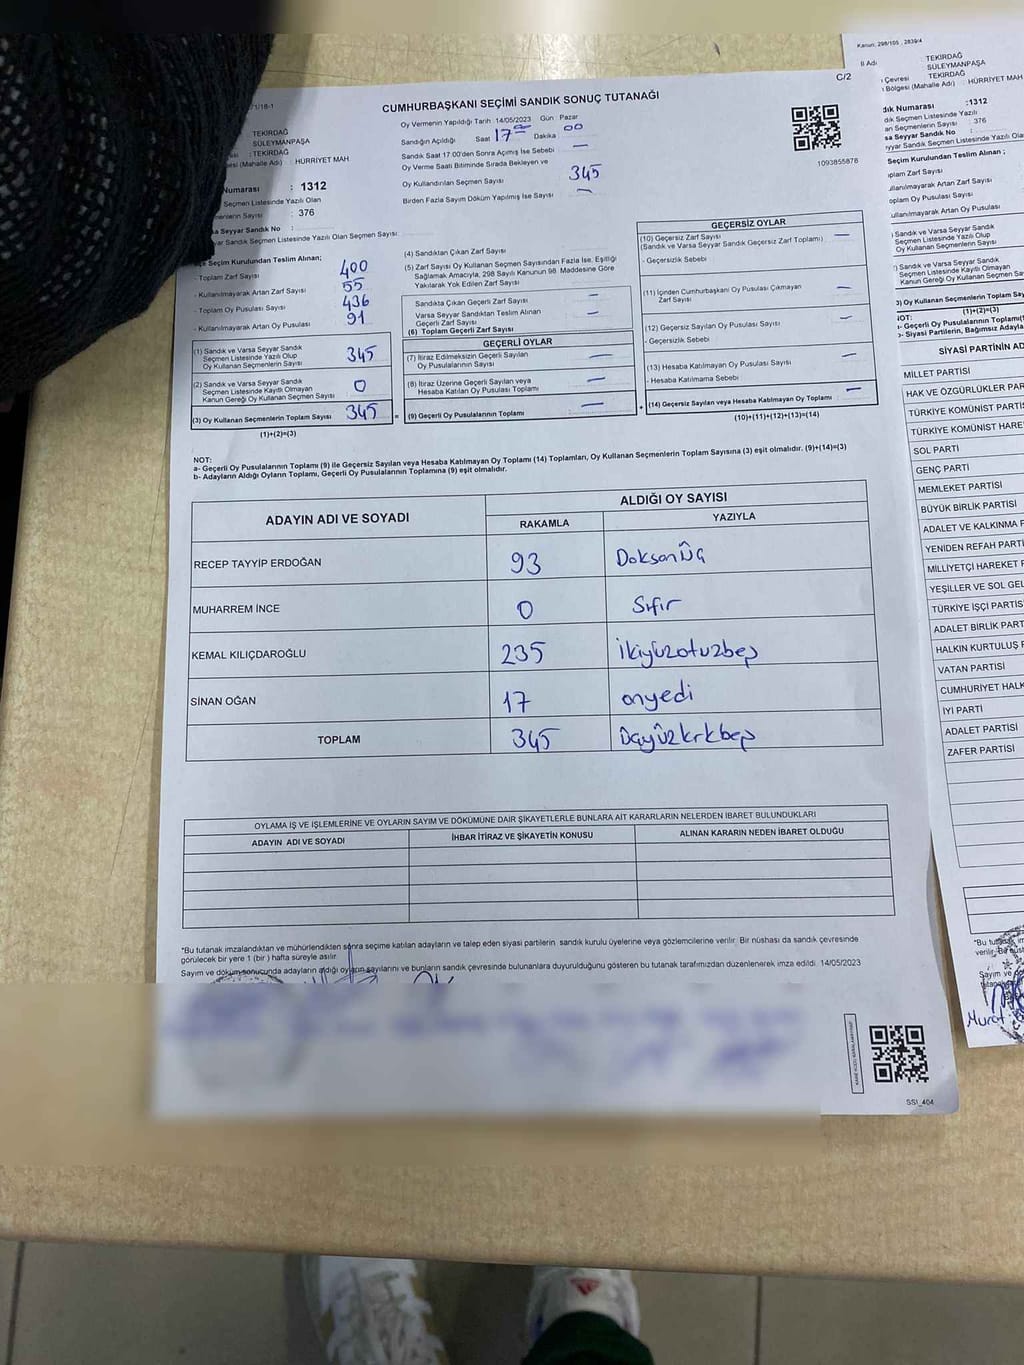 C/2
CUMHURBAŞKANI SEÇİMİ SANDIK SONUÇ TUTANAĞI
Oy Vermenin Yapıldığı Tarih :14/05/2023 Gün : Pazar
Sandığın Açıldığı Saat 17 00 Dakika 00
Sandık Saat 17:00'den Sonra Açılmış İse Sebebi —
Oy Verme Saati Bitiminde Sırada Bekleyen ve
Oy Kullandırılan Seçmen Sayısı 345
Birden Fazla Sayım Döküm Yapılmış İse Sayısı —
1093855878
TEKİRDAĞ
SÜLEYMANPAŞA
: TEKİRDAĞ
(Mahalle Adı) : HÜRRİYET MAH
Numarası : 1312
Seçmen Listesinde Yazılı Olan
Sayısı : 376
Seyyar Sandık No :
Seyyar Sandık Seçmen Listesinde Yazılı Olan Seçmen Sayısı:
Seçim Kurulundan Teslim Alınan;
- Toplam Zarf Sayısı 400
- Kullanılmayarak Artan Zarf Sayısı 55
- Toplam Oy Pusulası Sayısı 436
- Kullanılmayarak Artan Oy Pusulası 91
(1) Sandık ve Varsa Seyyar Sandık
Seçmen Listesinde Yazılı Olup
Oy Kullanan Seçmenlerin Sayısı 345
(2) Sandık ve Varsa Seyyar Sandık
Seçmen Listesinde Kayıtlı Olmayan
Kanun Gereği Oy Kullanan Sayısı 0
(3) Oy Kullanan Seçmenlerin Toplam Sayısı 345 =
(1)+(2)=(3)
(4) Sandıktan Çıkan Zarf Sayısı
(5) Zarf Sayısı Oy Kullanan Seçmen Sayısından Fazla İse, Eşitliği
Sağlamak Amacıyla, 298 Sayılı Kanunun 98. Maddesine Göre
Yakılarak Yok Edilen Zarf Sayısı
Sandıkta Çıkan Geçerli Zarf Sayısı —
Varsa Seyyar Sandıktan Teslim Alınan
Geçerli Zarf Sayısı —
(6) Toplam Geçerli Zarf Sayısı
GEÇERLİ OYLAR
(7) İtiraz Edilmeksizin Geçerli Sayılan
Oy Pusulalarının Sayısı —
(8) İtiraz Üzerine Geçerli Sayılan veya
Hesaba Katılan Oy Pusulası Toplamı —
(9) Geçerli Oy Pusulalarının Toplamı — +
GEÇERSİZ OYLAR
(10) Geçersiz Zarf Sayısı —
(Sandık ve Varsa Seyyar Sandık Geçersiz Zarf Toplamı)
- Geçersizlik Sebebi
(11) İçinden Cumhurbaşkanı Oy Pusulası Çıkmayan
Zarf Sayısı —
(12) Geçersiz Sayılan Oy Pusulası Sayısı —
- Geçersizlik Sebebi
(13) Hesaba Katılmayan Oy Pusulası Sayısı —
- Hesaba Katılmama Sebebi
(14) Geçersiz Sayılan veya Hesaba Katılmayan Oy Toplamı —
(10)+(11)+(12)+(13)=(14)
NOT:
a- Geçerli Oy Pusulalarının Toplamı (9) ile Geçersiz Sayılan veya Hesaba Katılmayan Oy Toplamı (14) Toplamları, Oy Kullanan Seçmenlerin Toplam Sayısına (3) eşit olmalıdır. (9)+(14)=(3)
b- Adayların Aldığı Oyların Toplamı, Geçerli Oy Pusulalarının Toplamına (9) eşit olmalıdır.
ADAYIN ADI VE SOYADI ALDIĞI OY SAYISI
RAKAMLA YAZIYLA
RECEP TAYYİP ERDOĞAN 93 DoksanÜç
MUHARREM İNCE 0 Sıfır
KEMAL KILIÇDAROĞLU 235 ikiyüzotuzbeş
SİNAN OĞAN 17 onyedi
TOPLAM 345
OYLAMA İŞ VE İŞLEMLERİNE VE OYLARIN SAYIM VE DÖKÜMÜNE DAİR ŞİKAYETLERLE BUNLARA AİT KARARLARIN NELERDEN İBARET BULUNDUKLARI
ADAYIN ADI VE SOYADI İHBAR İTİRAZ VE ŞİKAYETİN KONUSU ALINAN KARARIN NEDEN İBARET OLDUĞU
*Bu tutanak imzalandıktan ve mühürlendikten sonra seçime katılan adayların ve talep eden siyasi partilerin sandık kurulu üyelerine veya gözlemcilerine verilir. Bir nüshası da sandık çevresinde
görülecek bir yere 1 (bir) hafta süreyle asılır.
Sayım ve döküm sonucunda adayların aldığı oyların sayılarını ve bunların sandık çevresinde bulunanlara duyurulduğunu gösteren bu tutanak tarafımızdan düzenlenerek imza edildi. 14/05/2023
SSI_404
Kanun: 298/105 , 2839/4
İl Adı TEKİRDAĞ
SÜLEYMANPAŞA
Çevresi : TEKİRDAĞ
Bölgesi (Mahalle Adı) : HÜRRİYET MAH
Numarası :1312
Seçmen Listesinde Yazılı Olan
Seçmenlerin Sayısı : 376
Seyyar Sandık No :
Seçim Kurulundan Teslim Alınan ;
Toplam Zarf Sayısı
Kullanılmayarak Artan Zarf Sayısı
Toplam Oy Pusulası Sayısı
Kullanılmayarak Artan Oy Pusulası
) Sandık ve Varsa Seyyar Sandık
Seçmen Listesinde Yazılı Olup
Oy Kullanan Seçmenlerin Sayısı
) Sandık ve Varsa Seyyar Sandık
Seçmen Listesinde Kayıtlı Olmayan
Kanun Gereği Oy Kullanan Sayısı
3) Oy Kullanan Seçmenlerin Toplam
(1)+(2)=(3)
NOT:
a- Geçerli Oy Pusulalarının Toplamı
b- Siyasi Partilerin, Bağımsız
SİYASİ PARTİNİN
MİLLET PARTİSİ
HAK VE ÖZGÜRLÜKLER
TÜRKİYE KOMÜNİST
TÜRKİYE KOMÜNİST
SOL PARTİ
GENÇ PARTİ
MEMLEKET PARTİSİ
BÜYÜK BİRLİK PARTİSİ
ADALET VE KALKINMA
YENİDEN REFAH
MİLLİYETÇİ HAREKET
YEŞİLLER VE SOL
TÜRKİYE İŞÇİ
ADALET BİRLİK
HALKIN KURTULUŞ
VATAN PARTİSİ
CUMHURİYET
İYİ PARTİ
ADALET PARTİSİ
ZAFER PARTİSİ
Murat